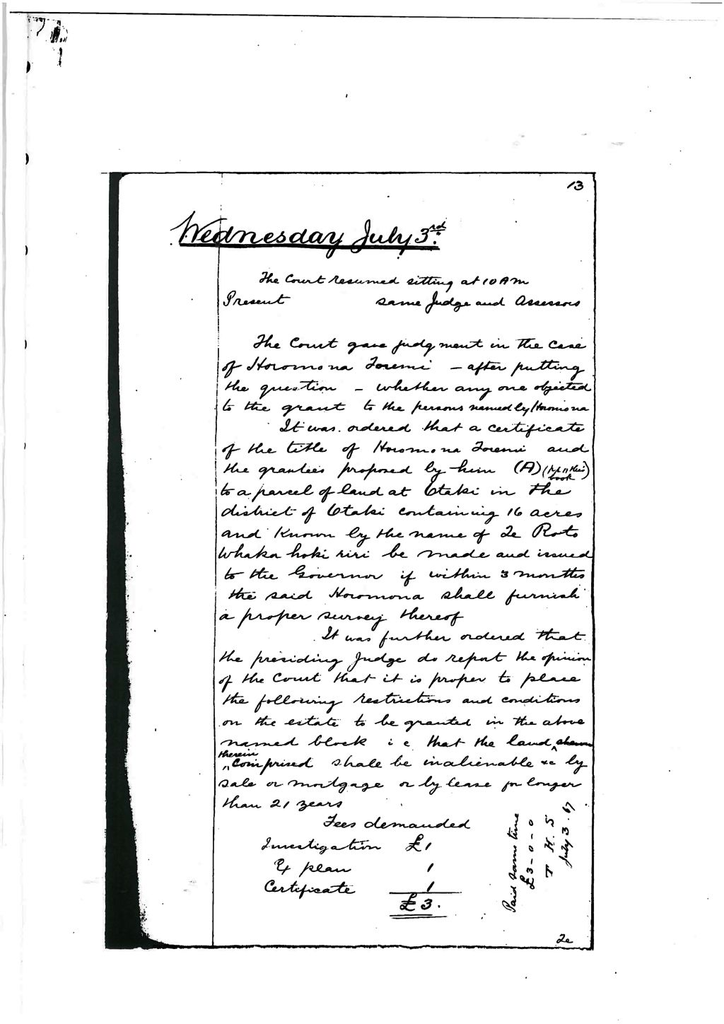 13
Wednesday July 3rd.
The Court resumed sitting at 10 AM
Present same Judge and Assessors
The Court gave judgment in the case
of Horomona Toremi — after putting
the question – whether any one objected
to the grant to the persons named by Horomona
It was ordered that a certificate
of the title of Horomona Toremi and
the grantees proposed by him (A)
book
to a parcel of land at Otaki in the
district of Otaki containing 16 acres
and known by the name of Te Roto
Whaka hoki riri be made and issued
to the Governor if within 3 months
the said Horomona shall furnish
a proper survey thereof
It was further ordered that
the presiding Judge do report the opinion
of the Court that it is proper to place
the following restrictions and conditions
on the estate to be granted in the above
named block i e that the land
therein
comprised shall be inalienable &c by
sale or mortgage or by lease for longer
than 21 years
Fees demanded
Investigation £1
Ex plan 1
Certificate 1
£3.
Paid same time
£3-0-0
T H S
July 3. 67
Te